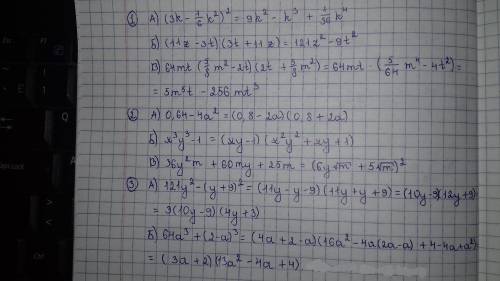 ① А) (3k - 1/6 k²)² = 9k² - k³ + 1/36 k⁴
Б) (11z - 3t)(3t + 11z) = 121z² - 9t²
В) 64mt (5/8 m² - 2t)(2t + 5/8 m²) = 64mt · (5/64 m⁴ - 4t²) =
= 5m⁵t - 256mt³
② А) 0,64 - 4a² = (0,8 - 2a)(0,8 + 2a)
Б) x³y³ - 1 = (xy - 1)(x²y² + xy + 1)
В) 36y²m + 60my + 25m = (6y√m + 5√m)²
③ А) 121y² - (y + 9)² = (11y - y - 9)(11y + y + 9) = (10y - 9)(12y + 9)
= 3(10y - 9)(4y + 3)
Б) 64a³ + (2 - a)³ = (4a + 2 - a)(16a² - 4a(2a - a) + 4 - 4a + a²)
= (3a + 2)(13a² - 4a + 4)